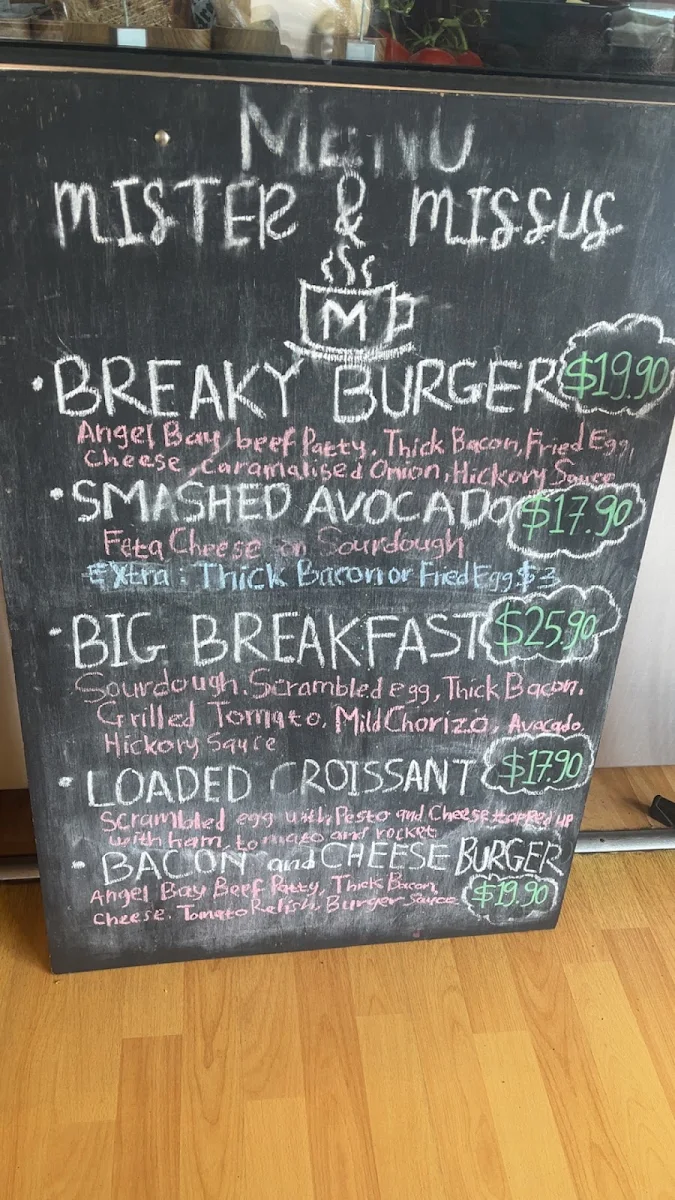 MENU
MISTER & MISSUS
M
• BREAKY BURGER $19.90
Angel Bay beef Patty, Thick Bacon, Fried Egg,
Cheese, Caramalised Onion, Hickory Sauce
• SMASHED AVOCADO $17.90
Feta Cheese on Sourdough
Extra: Thick Bacon or Fried Egg $3
• BIG BREAKFAST $25.90
Sourdough, Scrambled egg, Thick Bacon,
Grilled Tomato, Mild Chorizo, Avocado,
Hickory Sauce
• LOADED CROISSANT $17.90
Scrambled egg with Pesto and Cheese topped up
with ham, tomato and rocket
• BACON and CHEESE BURGER
Angel Bay Beef Patty, Thick Bacon, $19.90
Cheese, Tomato Relish, Burger Sauce